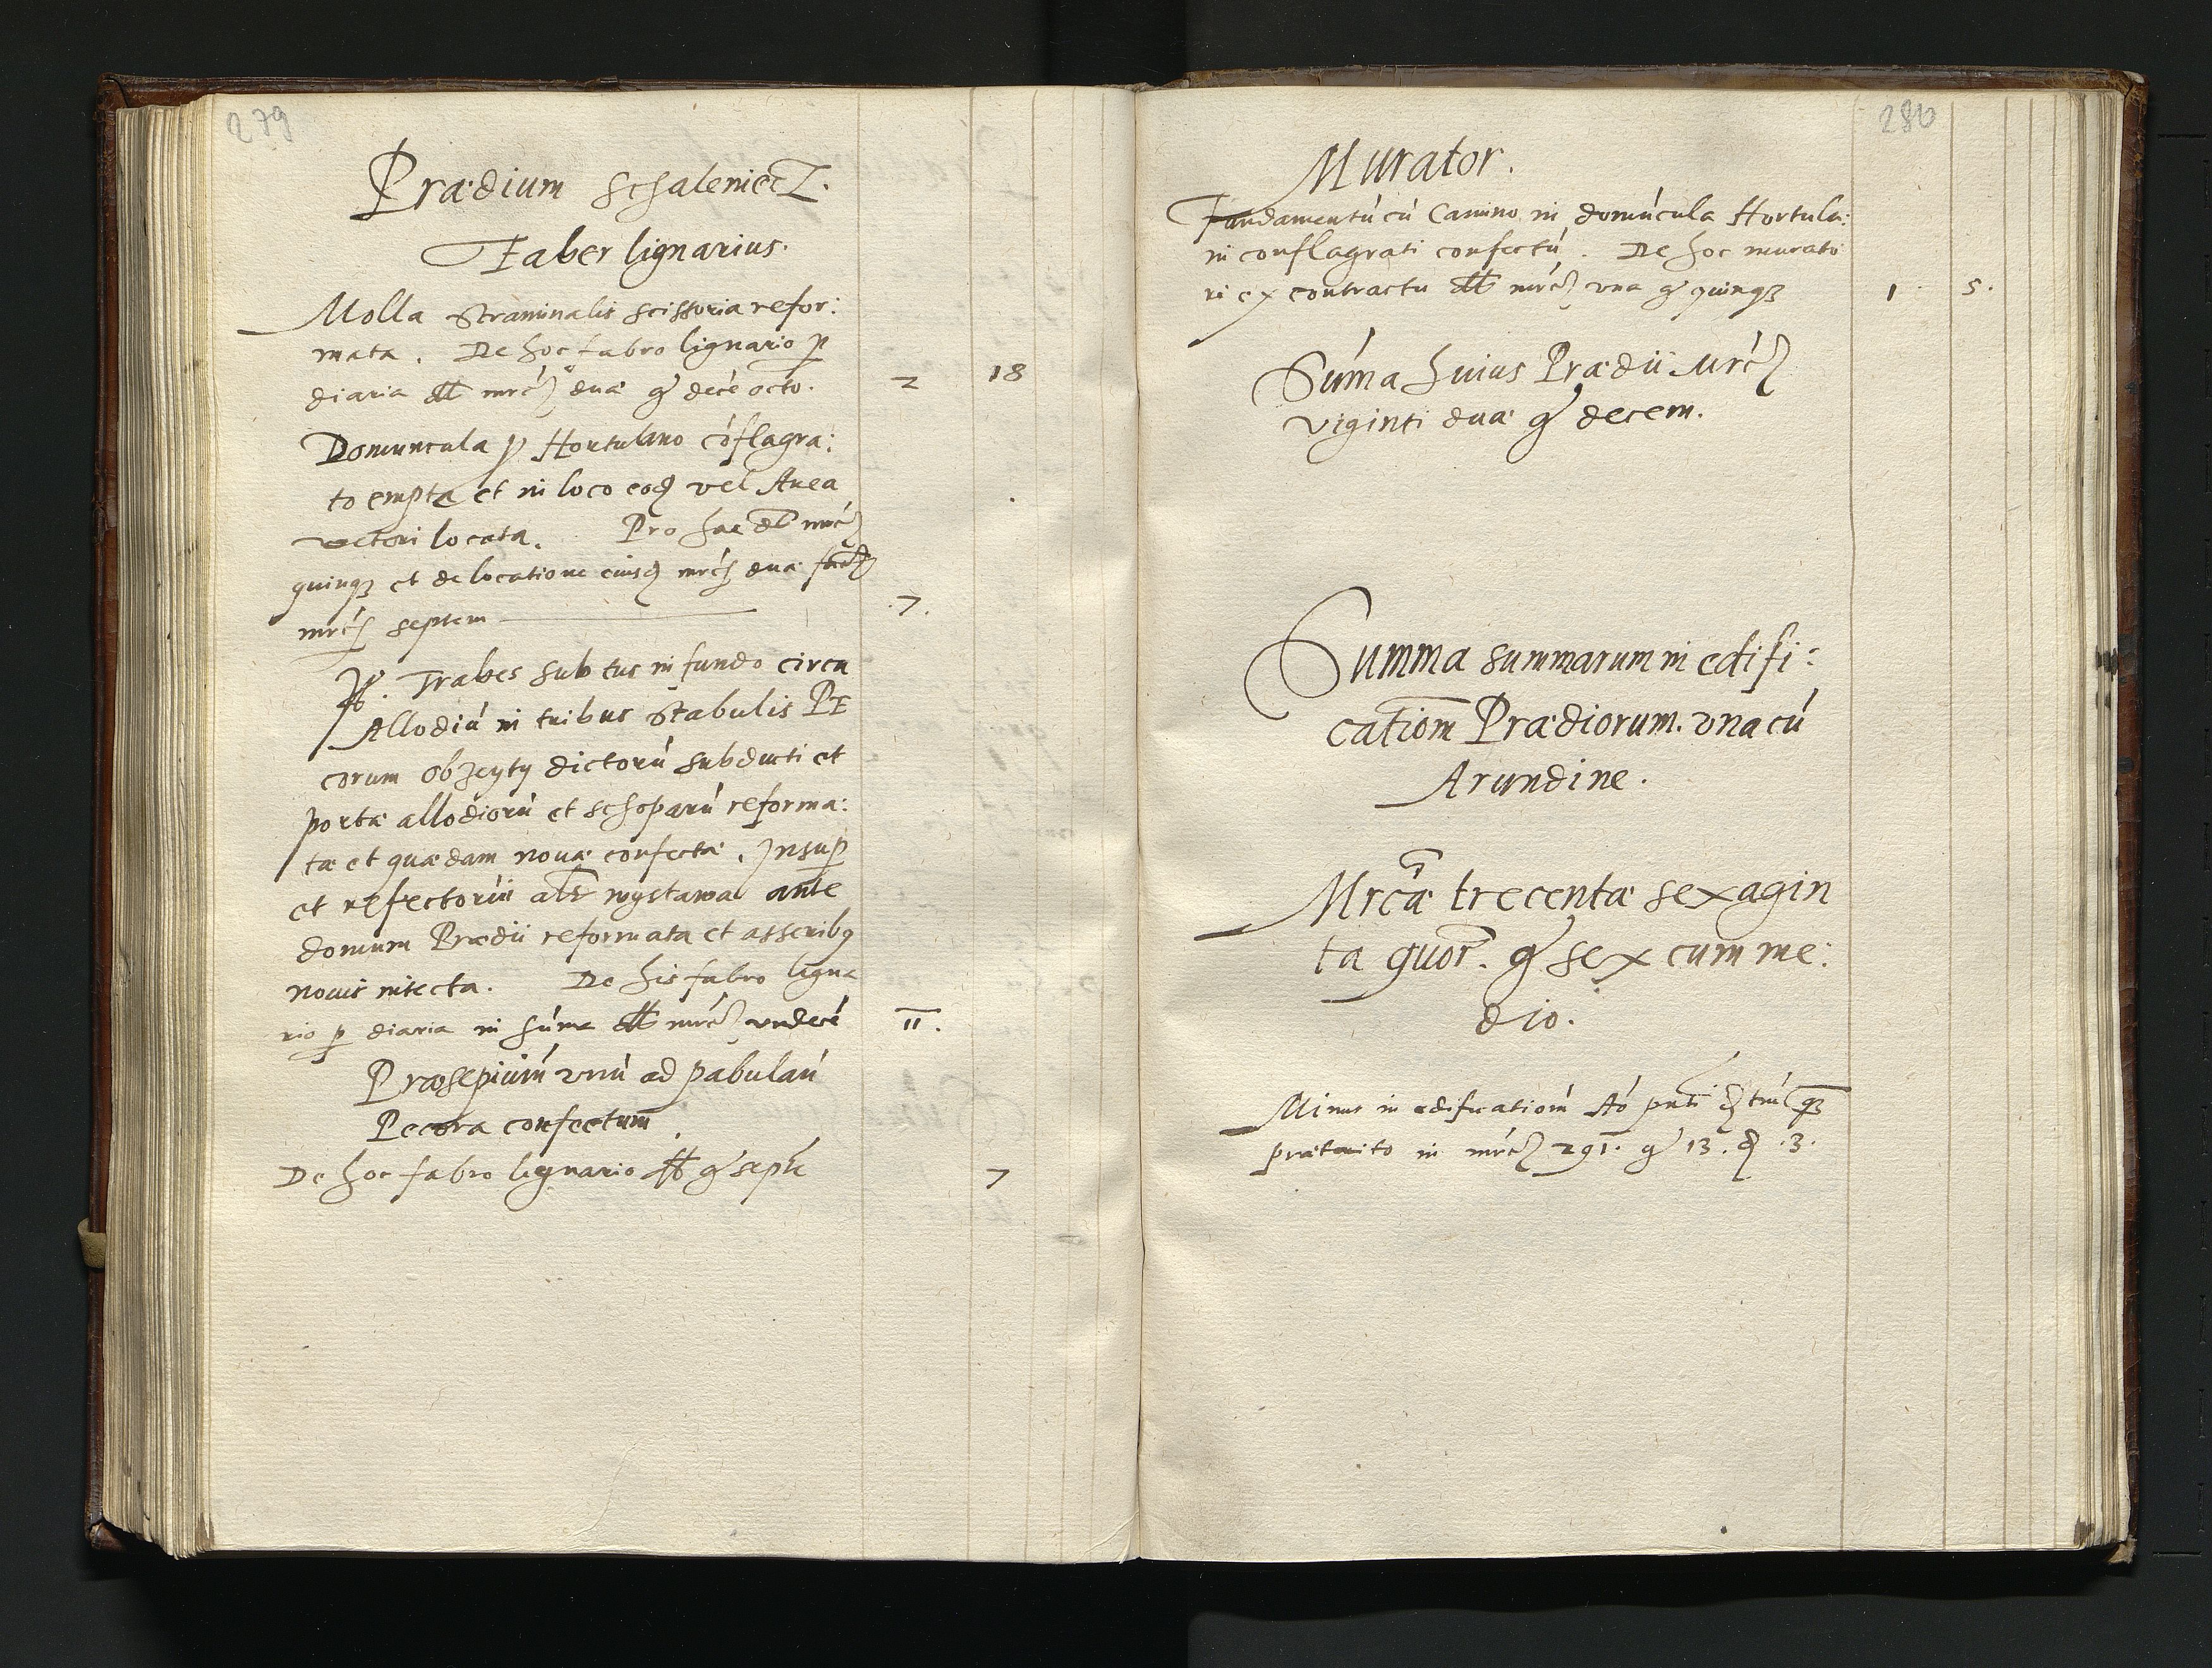 279
Prædium Schaleniecz.
Faber lignarius.
Molla Straminalis scissoria refor:
mata. De hoc fabro lignario p
diaria dt mrc duæ g decē octo. 2 18
Domuncula p Hortulano cōflagra:
to empta et in loco eod vel Area
vectori locata. Pro hac dt mrc
quinq et de locatione eiusd mrc duæ
mrc septem .7.
It. Trabes subtus in fundo circa
Allodiū in tribus Stabulis Pe
corum Obzeyty dictorū subducti et
portæ allodiorū et schoparū reforma:
tæ et quædam nouæ confectæ. Insup
et refectoriū als wystawa ante
domum Prædii reformata et asserib9
nouis intecta. De his fabro ligna
rio p diaria in sūma dt mrc vndecē 11.
Præsepiūm vnū ad pabulan̄
Pecora confectum.
De hoc fabro lignario dt g septē 7
280
Murator.
Fundamentū cū Camino in domūcula Hortula:
ni conflagrati confectū. De hoc murato
ri ex contractu dt mrc vna g quinq 1. 5.
Sūma huius Prædii Mrc
viginti duæ g decem.
Summa summarum in edifi:
cationem Prædiorum. vna cū
Arundine.
Mrcæ trecentæ sexagin
ta quor. g sex cum me:
dio.
Minus in ædificationem Aō pnti q
præterito in mrc 291. g 13. d .3.